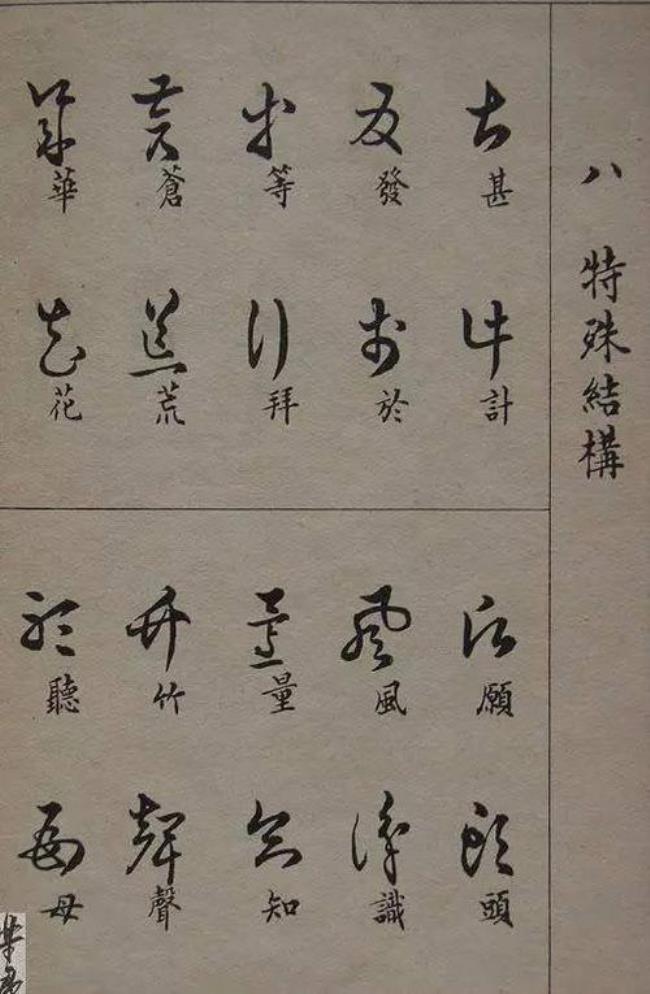 八 特殊結構
甚 計
發 於
等 拜
蒼 荒
華 花
願 頭
風 識
量 知
竹 聲
聽 母